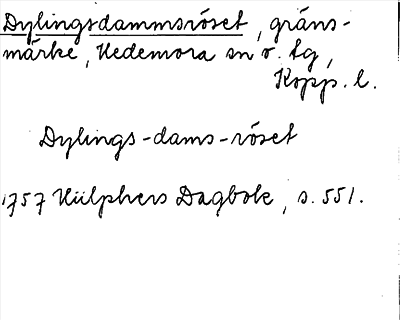 Dylingsdammsröset, gräns-
märke, Hedemora sn o. tg,
Kopp. l.
Dylings-dams-röset
1757 Hülphers Dagbok, s. 551.